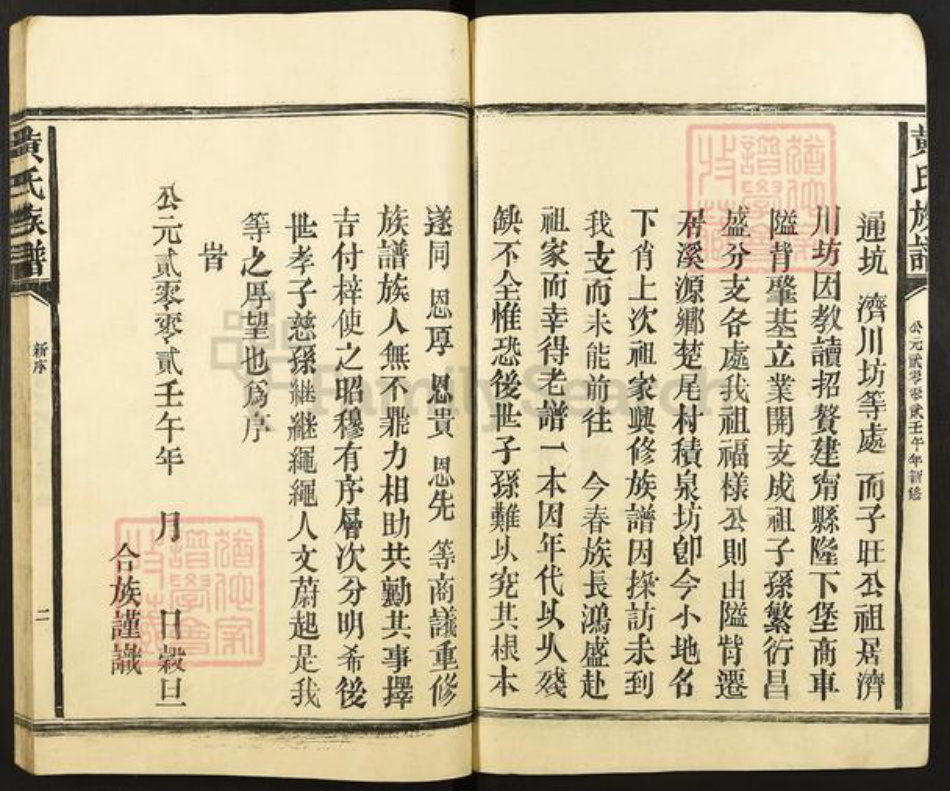 黄氏族譜
公元貳零零貳壬午年新修
通坑 濟川坊等處 而子旺公祖居濟
川坊因教讀招贅建甯縣隆下堡商車
隘背肇基立業開支成祖子孫繁衍昌
盛分支各處我祖福樣公則由隘背遷
居溪源鄉楚尾村積泉坊卽今小地名
下肖上次祖家興修族譜因探訪未到
我支而未能前往 今春族長鴻盛赴
祖家而幸得老譜一本因年代以久殘
缺不全惟恐後世子孫難以究其根本
遂同 恩厚 恩貴 恩先 等商議重修
族譜族人無不鼎力相助共勷其事擇
吉付梓使之昭穆有序層次分明希後
世孝子慈孫継継繩繩人文蔚起是我
等之厚望也爲序
旹
公元貳零零貳壬午年 月 日穀旦
合族謹識
黄氏族譜
新序
二
FamilySearch